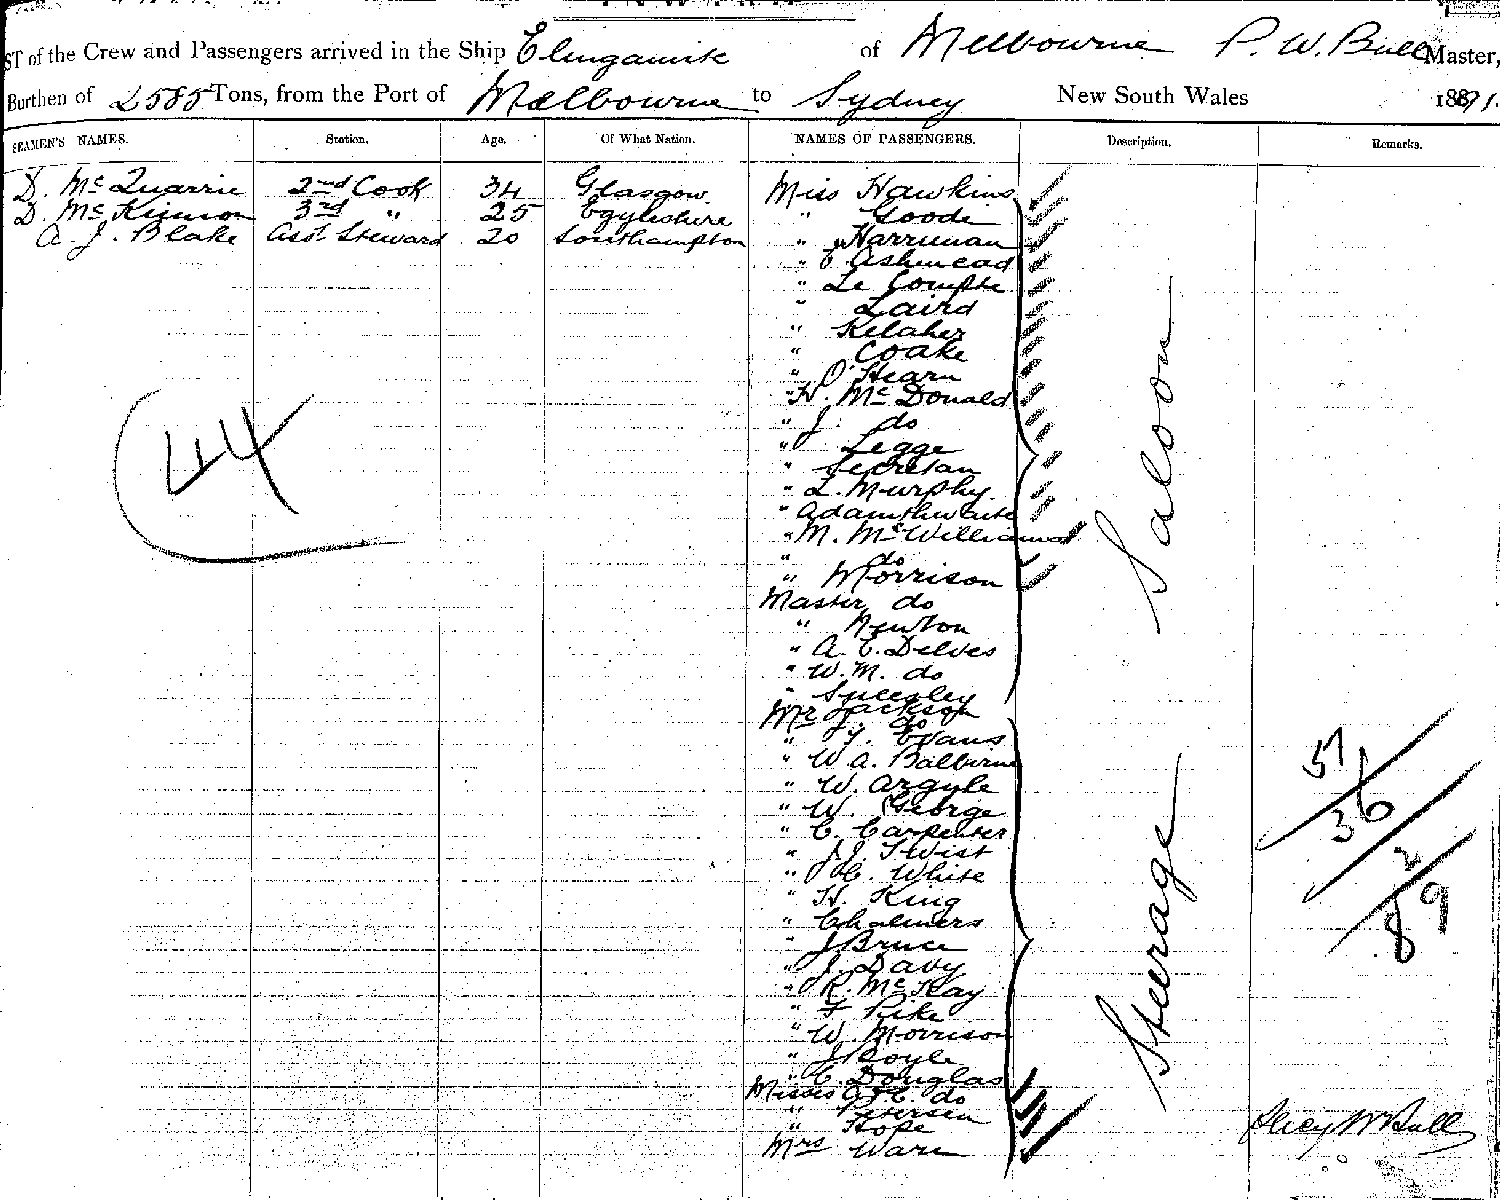 ST of the Crew and Passengers arrived in the Ship Elingamite of Melbourne P. W. Bull Master,
Burthen of 2585 Tons, from the Port of Melbourne to Sydney New South Wales 1891.
SEAMEN'S NAMES. Station. Age. Of What Nation. NAMES OF PASSENGERS. Description. Remarks.
D. McQuarrie 2nd Cook 34 Glasgow Miss Hawkins
D. McKinnon 3rd " 25 " Goode
A. J. Blake Asst Steward 20 Southampton " Harriman
" Ashmead
" Le Compte
" Laird
" Kelaher
" Coake
" O'Hearn
" H. McDonald
" J. do
" Legge
" Secretan
" L. Murphy
" Adamthwaite
" M. McWilliams
" do
" Morrison
Master do
" Newton
" A. E. Delves
" W. M. do
" Speesley
Mr Jackson
" J. do
" Evans
" W. A. Balbirnie
" W. Argyle
" W. George
" C. Carpenter
" J. J. Twist
" C. White
" H. King
" Chalmers
" J Bruce
" J. Davy
" R. McKay
" F Pike
" W. Morrison
" J Royle
" C. Douglas
Misses do
" Petersen
" Hope
Mrs Ware
44
Saloon
Steerage
51
36
2
89
Percy W Bull